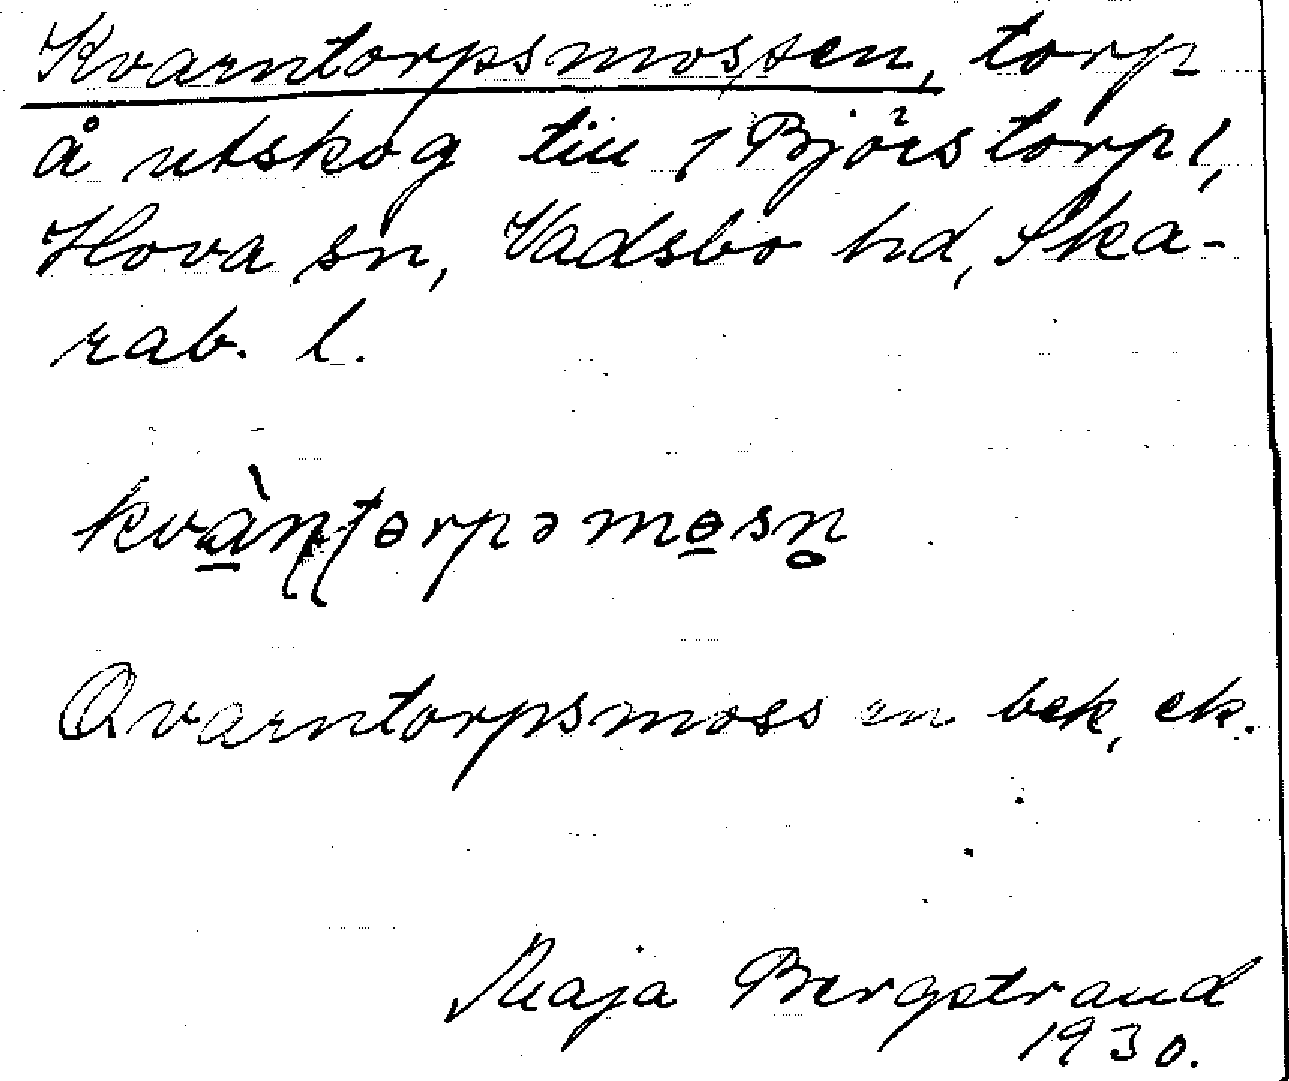 Kvarntorpsmossen, torp
å utskog till 1 Björstorp 1,
Hova sn, Vadsbo hd, Ska-
rab. l.
kvàntɵrpəmɵsn̥
Qvarntorpsmossen bek, ek.
Maja Bergstrand
1930.